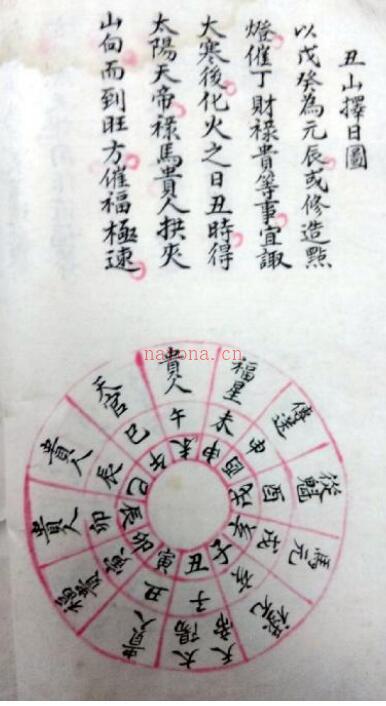 丑山擇日圖
以戊癸為元辰或修造點
燈催丁財祿貴等事宜諏
大寒後化火之日丑時得
太陽天帝祿馬貴人拱夾
山向而到旺方催福極速
貴人
福星
傳送
從魁
馬元
天帝
太陽
貴人
貴人
貴人
天官
午
未
申
酉
戌
亥
子
丑
寅
卯
辰
巳
未
申
酉
戌
亥
子
丑
寅
卯
辰
巳
午
nayona.cn